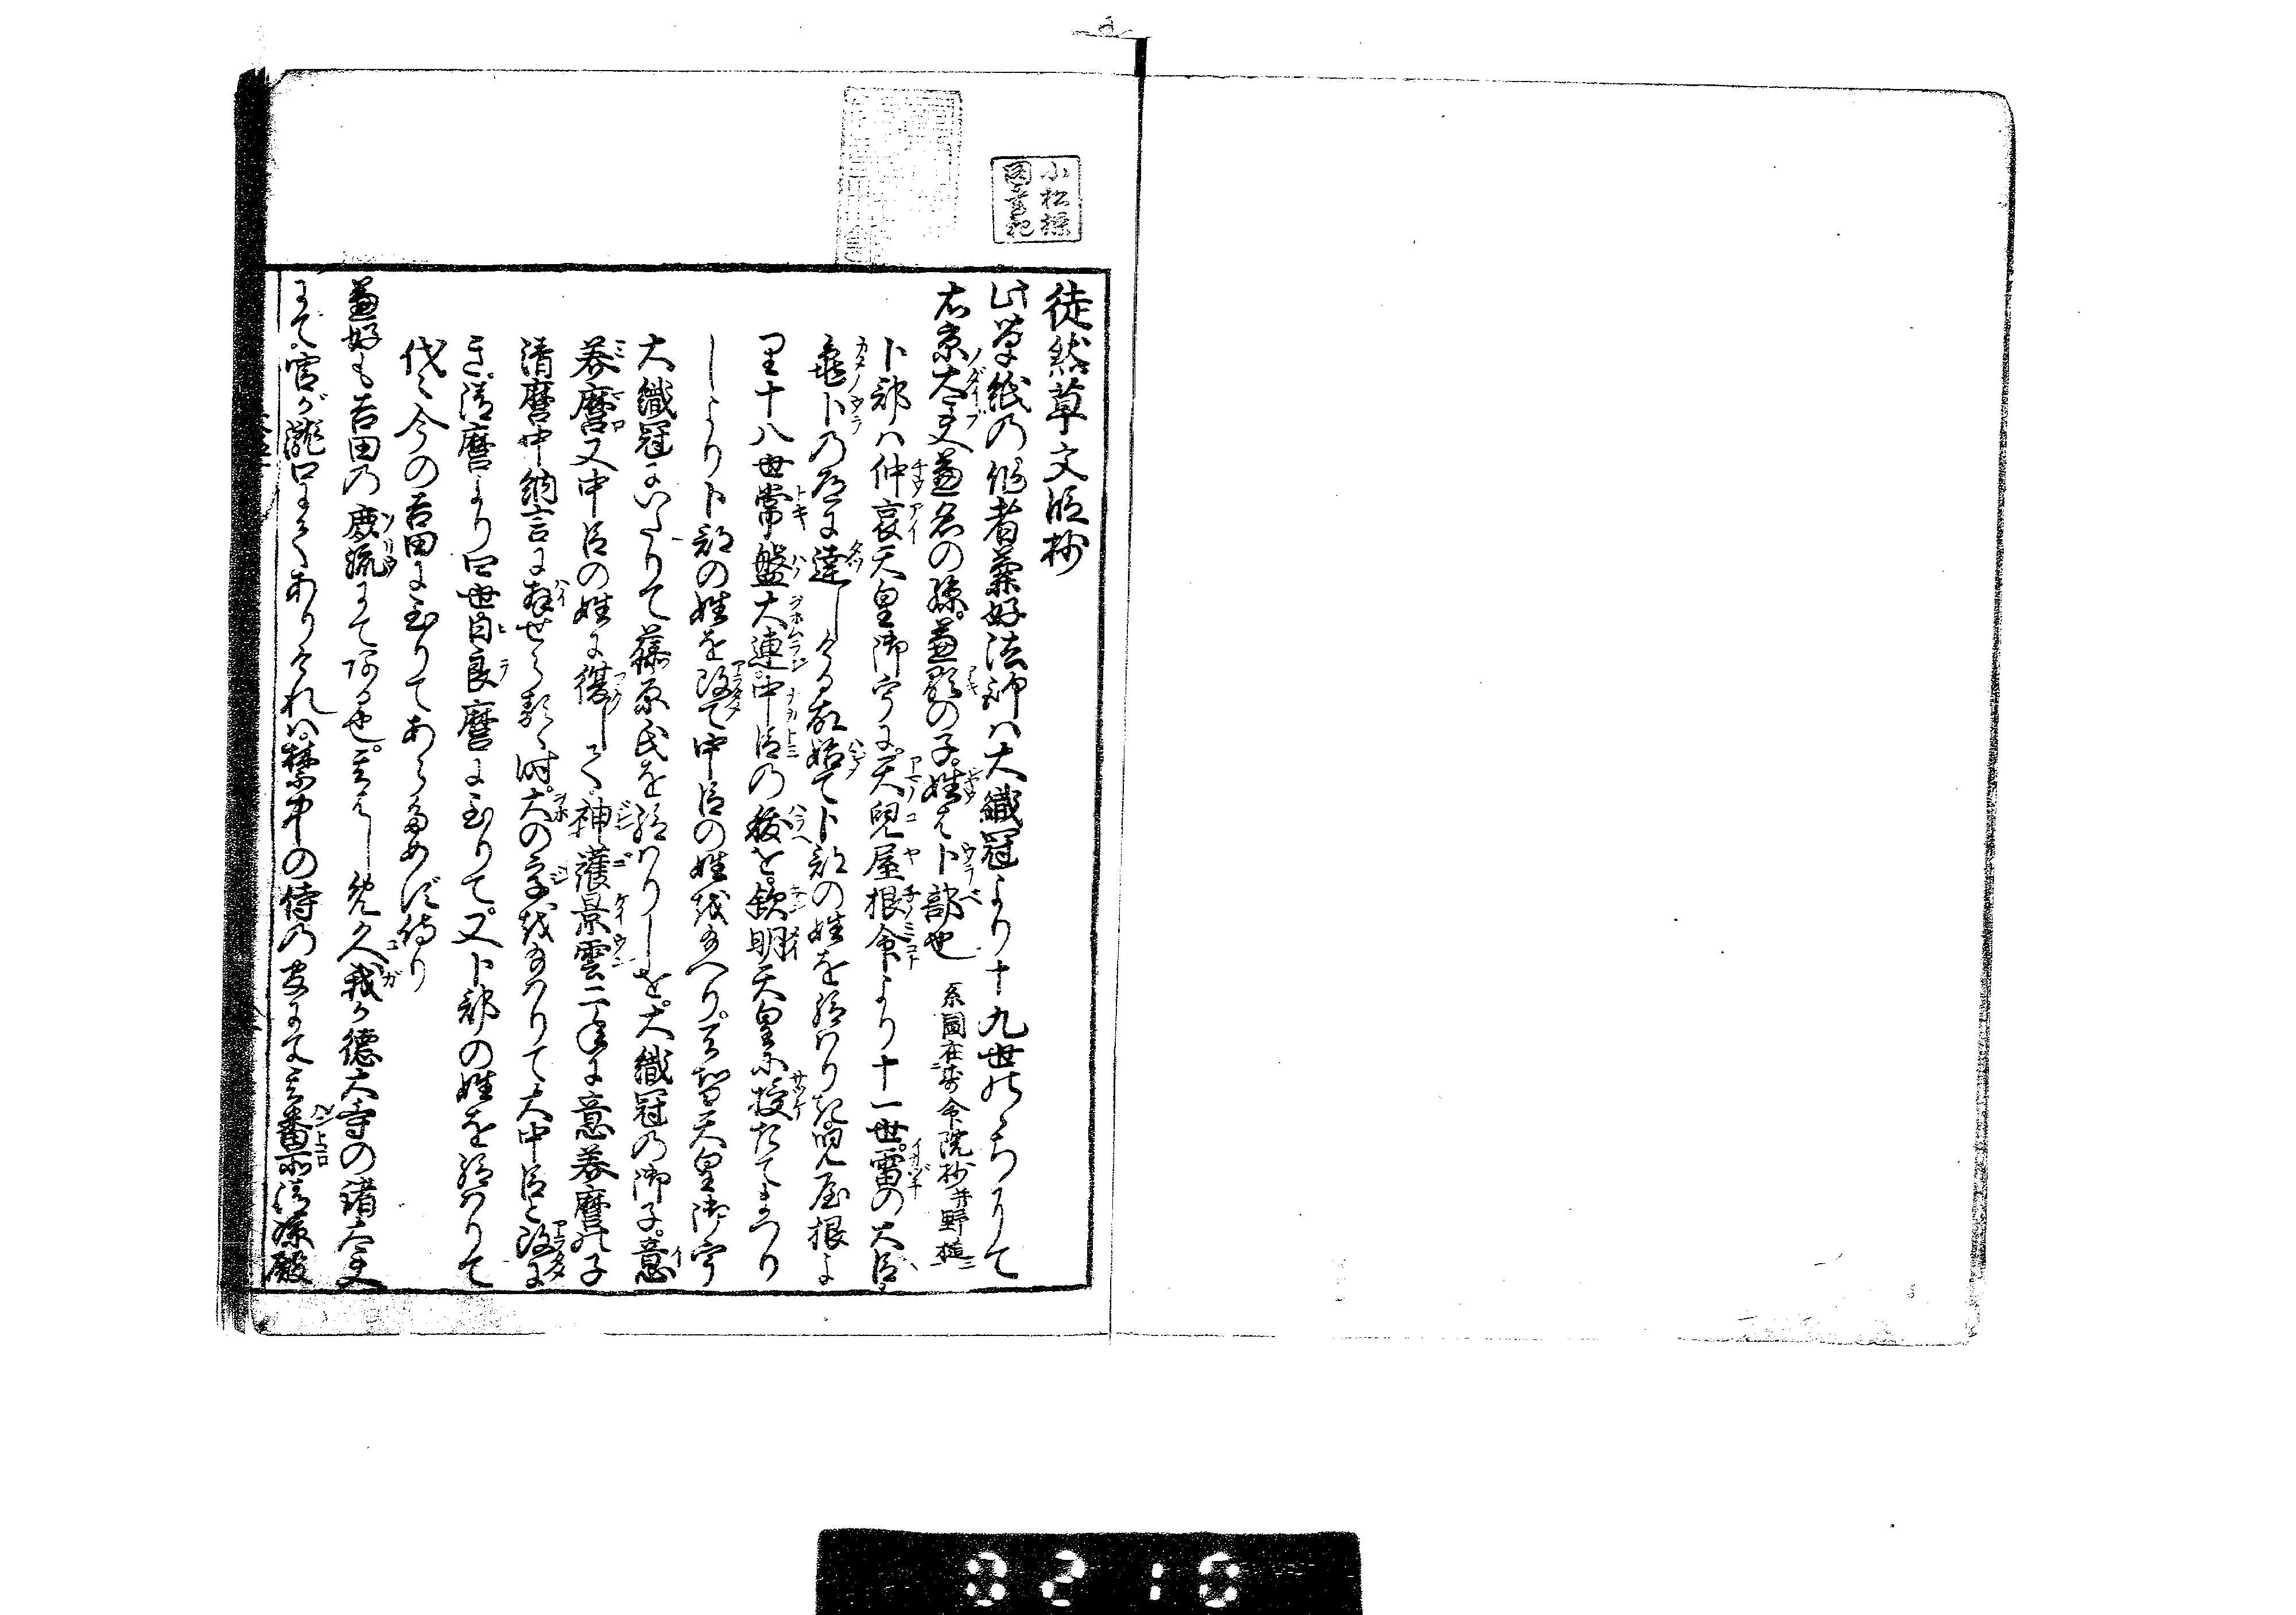 徒然草文段抄
此草紙の作者兼好法師は大織冠より十九世にあたりて
右京大夫兼名の孫。兼顕の子。姓は卜部也 系圖在壽命院抄并野槌
卜部は仲哀天皇御宇に。天兒屋根命より十一世。雷の大臣
亀卜の道に達しける故始て卜部の姓を給はり。兒屋根よ
り十八世常盤大連。中臣の祓を。欽明天皇に授たてまつり
しより卜部の姓を改て中臣の姓を給へり。天智天皇御宇
大織冠にいたりて藤原氏を給はりしを。大織冠の御子。意
美麿又中臣の姓に復して。神護景雲二年に意美麿の子
清麿中納言に拝せらるゝ時。大の字を給はりて大中臣と改に
き。清麿より四世日良麿に至りて。又卜部の姓を給はりて
代々今の吉田に至りてあらためず侍り
兼好も吉田の庶流にて侍る也。其上久我か徳大寺の諸大夫
にて。官が瀧口にてありければ。禁中の侍の事にて云番所清凉殿
小松操
図書記
0215